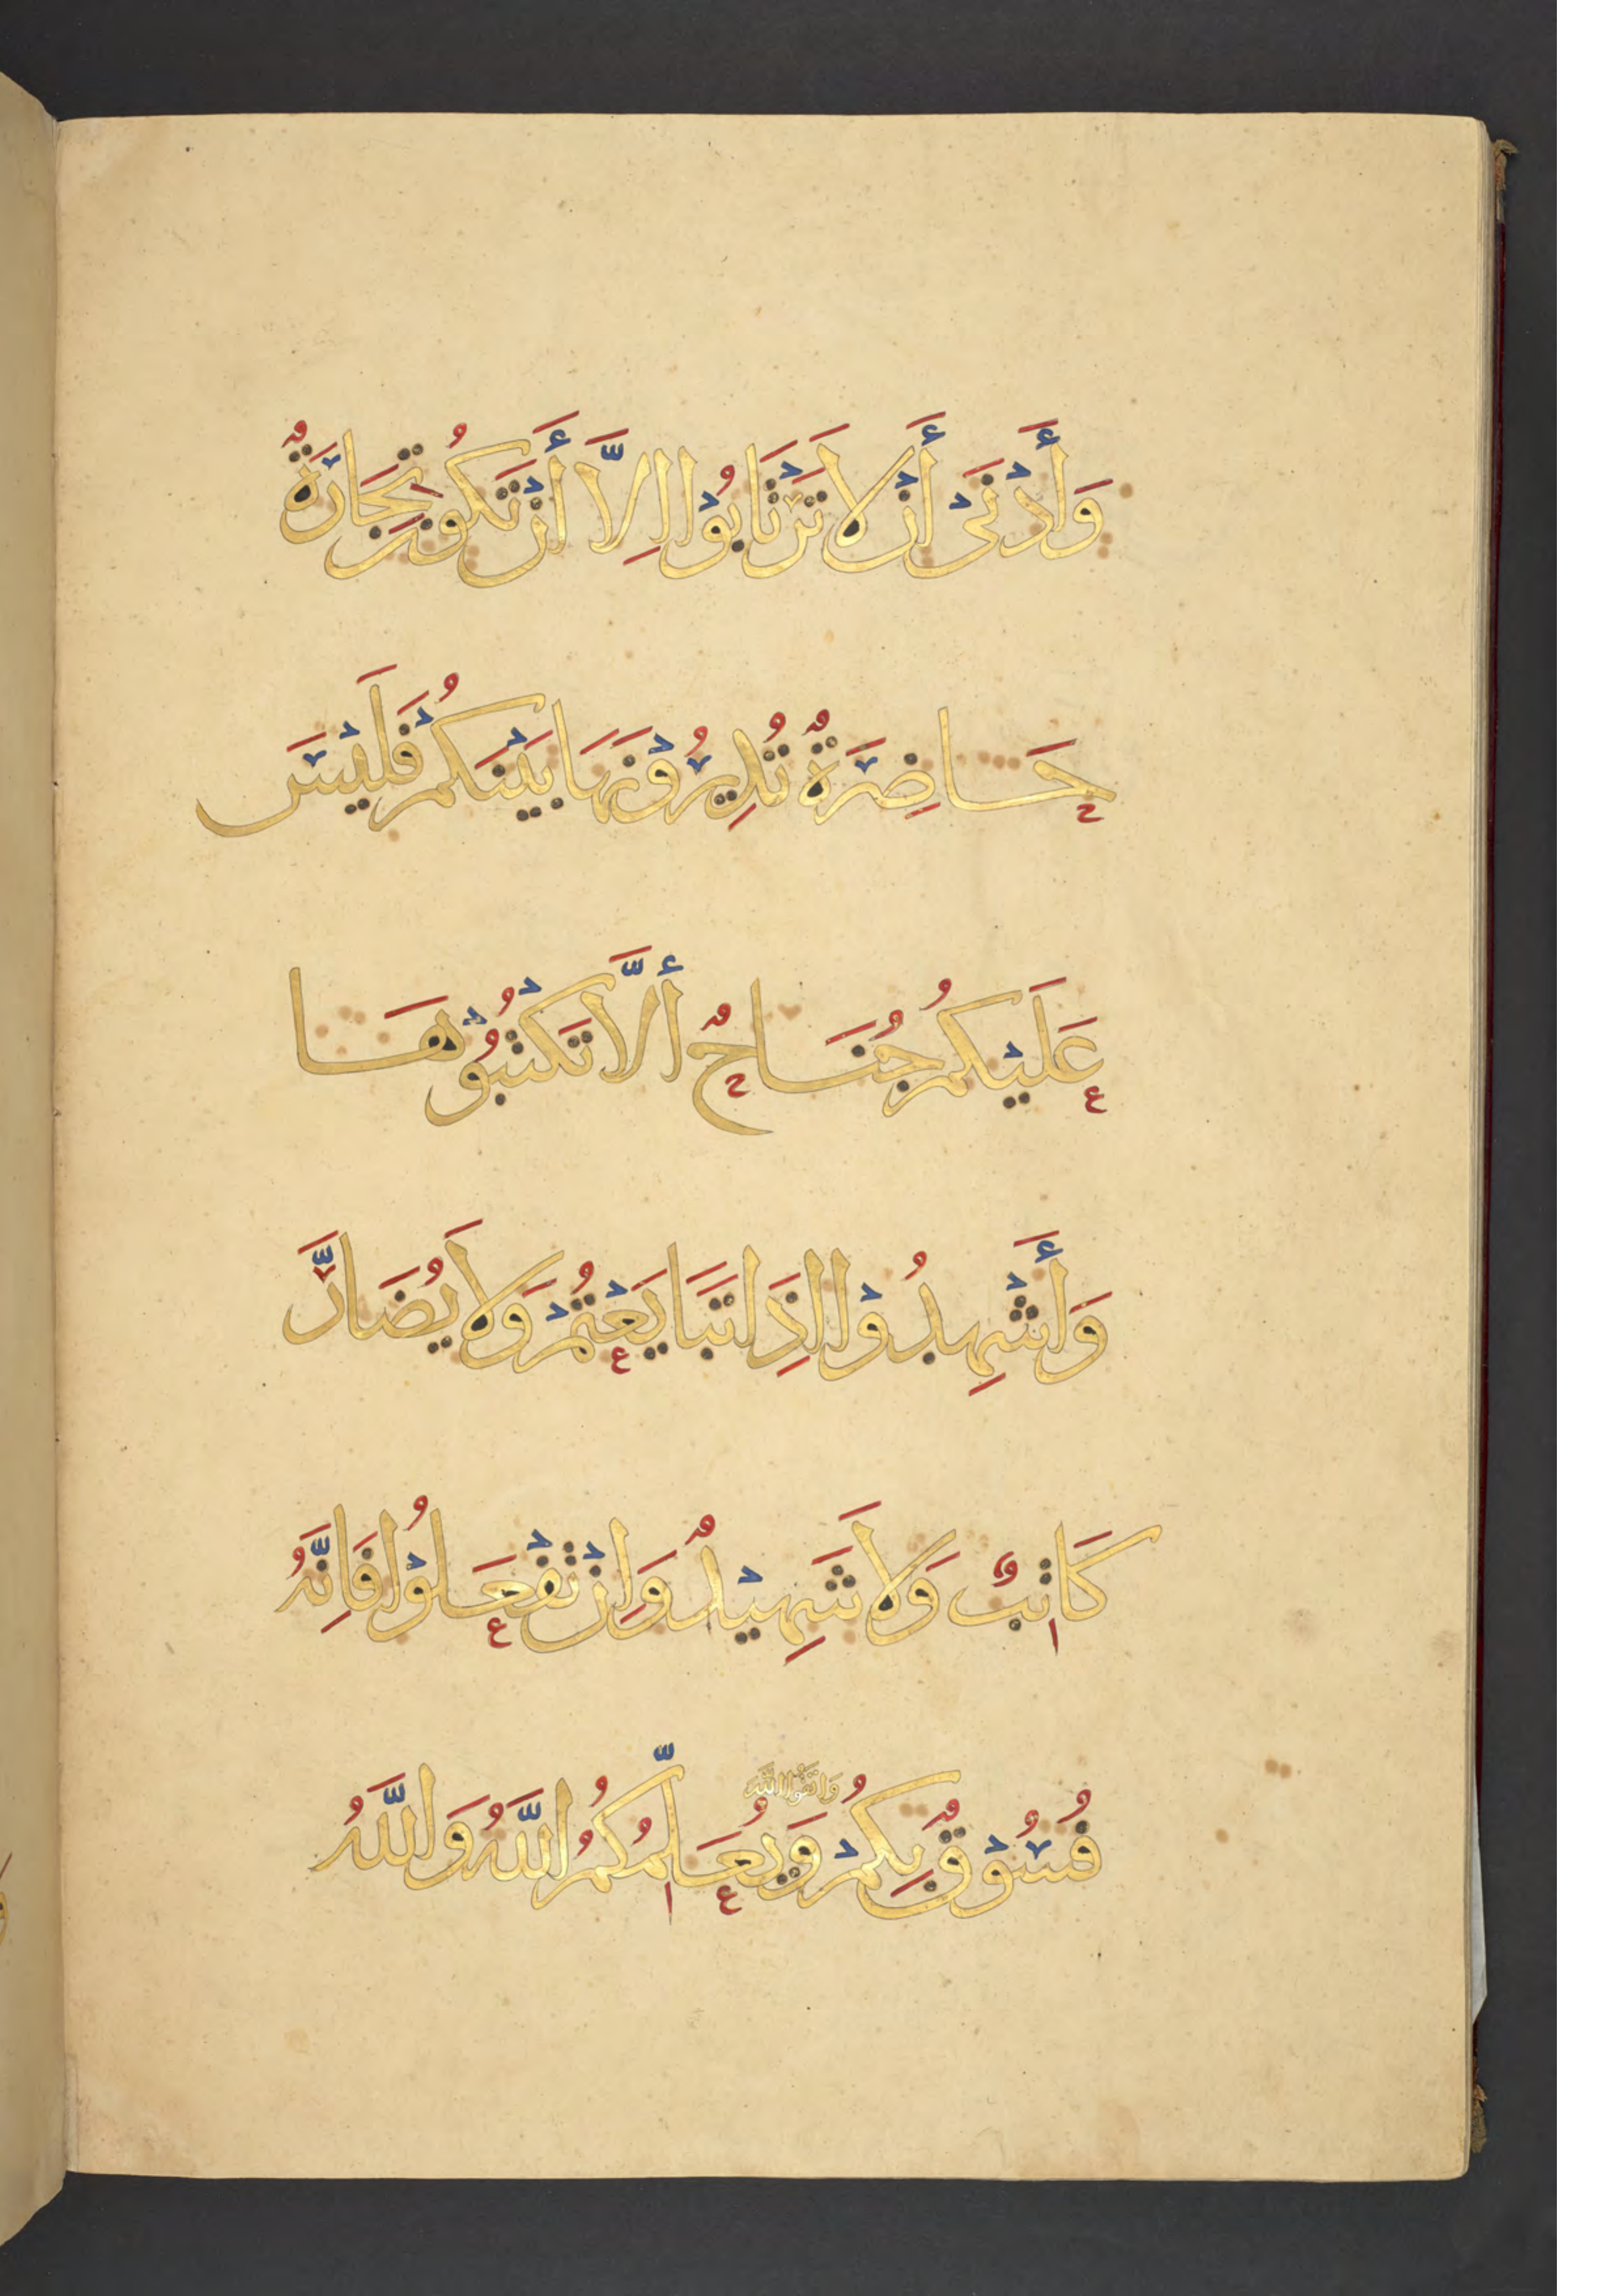 وَأَدْنَىْ أَنْ لَا تَرْتَابُوْا اِلَّا أَنْ تَكُونَ تِجَارَةٌ
حَاضِرَةٌ تُدِيرُوْنَهَا بَيْنَكُمْ فَلَيْسَ
عَلَيْكُمْ جُنَاحٌ أَلَّا تَكْتُبُوْهَا
وَأَشْهِدُوْا اِذَا تَبَايَعْتُمْ وَلَا يُضَارَّ
كَاتِبٌ وَلَا شَهِيْدٌ وَاِنْ تَفْعَلُوْا فَاِنَّهُ
وَاتَّقُوا اللَّهَ
فُسُوْقٌ بِكُمْ وَيُعَلِّمُكُمُ اللَّهُ وَاللَّهُ